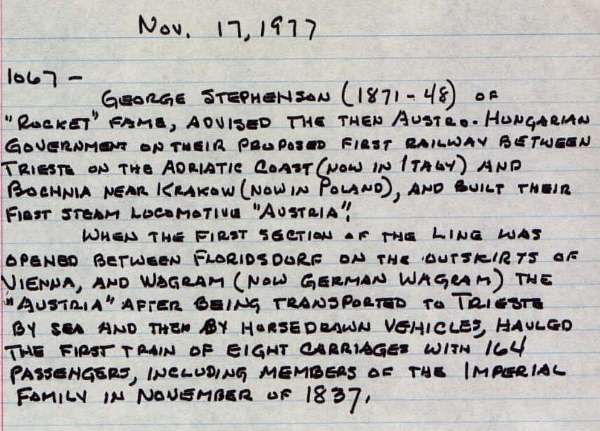 Nov. 17, 1977
1067 -
GEORGE STEPHENSON (1871-48) OF
"ROCKET" FAME, ADVISED THE THEN AUSTRO-HUNGARIAN
GOVERNMENT ON THEIR PROPOSED FIRST RAILWAY BETWEEN
TRIESTE ON THE ADRIATIC COAST (NOW IN ITALY) AND
BOCHNIA NEAR KRAKOW (NOW IN POLAND), AND BUILT THEIR
FIRST STEAM LOCOMOTIVE "AUSTRIA".
WHEN THE FIRST SECTION OF THE LINE WAS
OPENED BETWEEN FLORIDSDORF ON THE OUTSKIRTS OF
VIENNA, AND WAGRAM (NOW GERMAN WAGRAM) THE
"AUSTRIA" AFTER BEING TRANSPORTED TO TRIESTE
BY SEA AND THEN BY HORSEDRAWN VEHICLES, HAULED
THE FIRST TRAIN OF EIGHT CARRIAGES WITH 164
PASSENGERS, INCLUDING MEMBERS OF THE IMPERIAL
FAMILY IN NOVEMBER OF 1837.